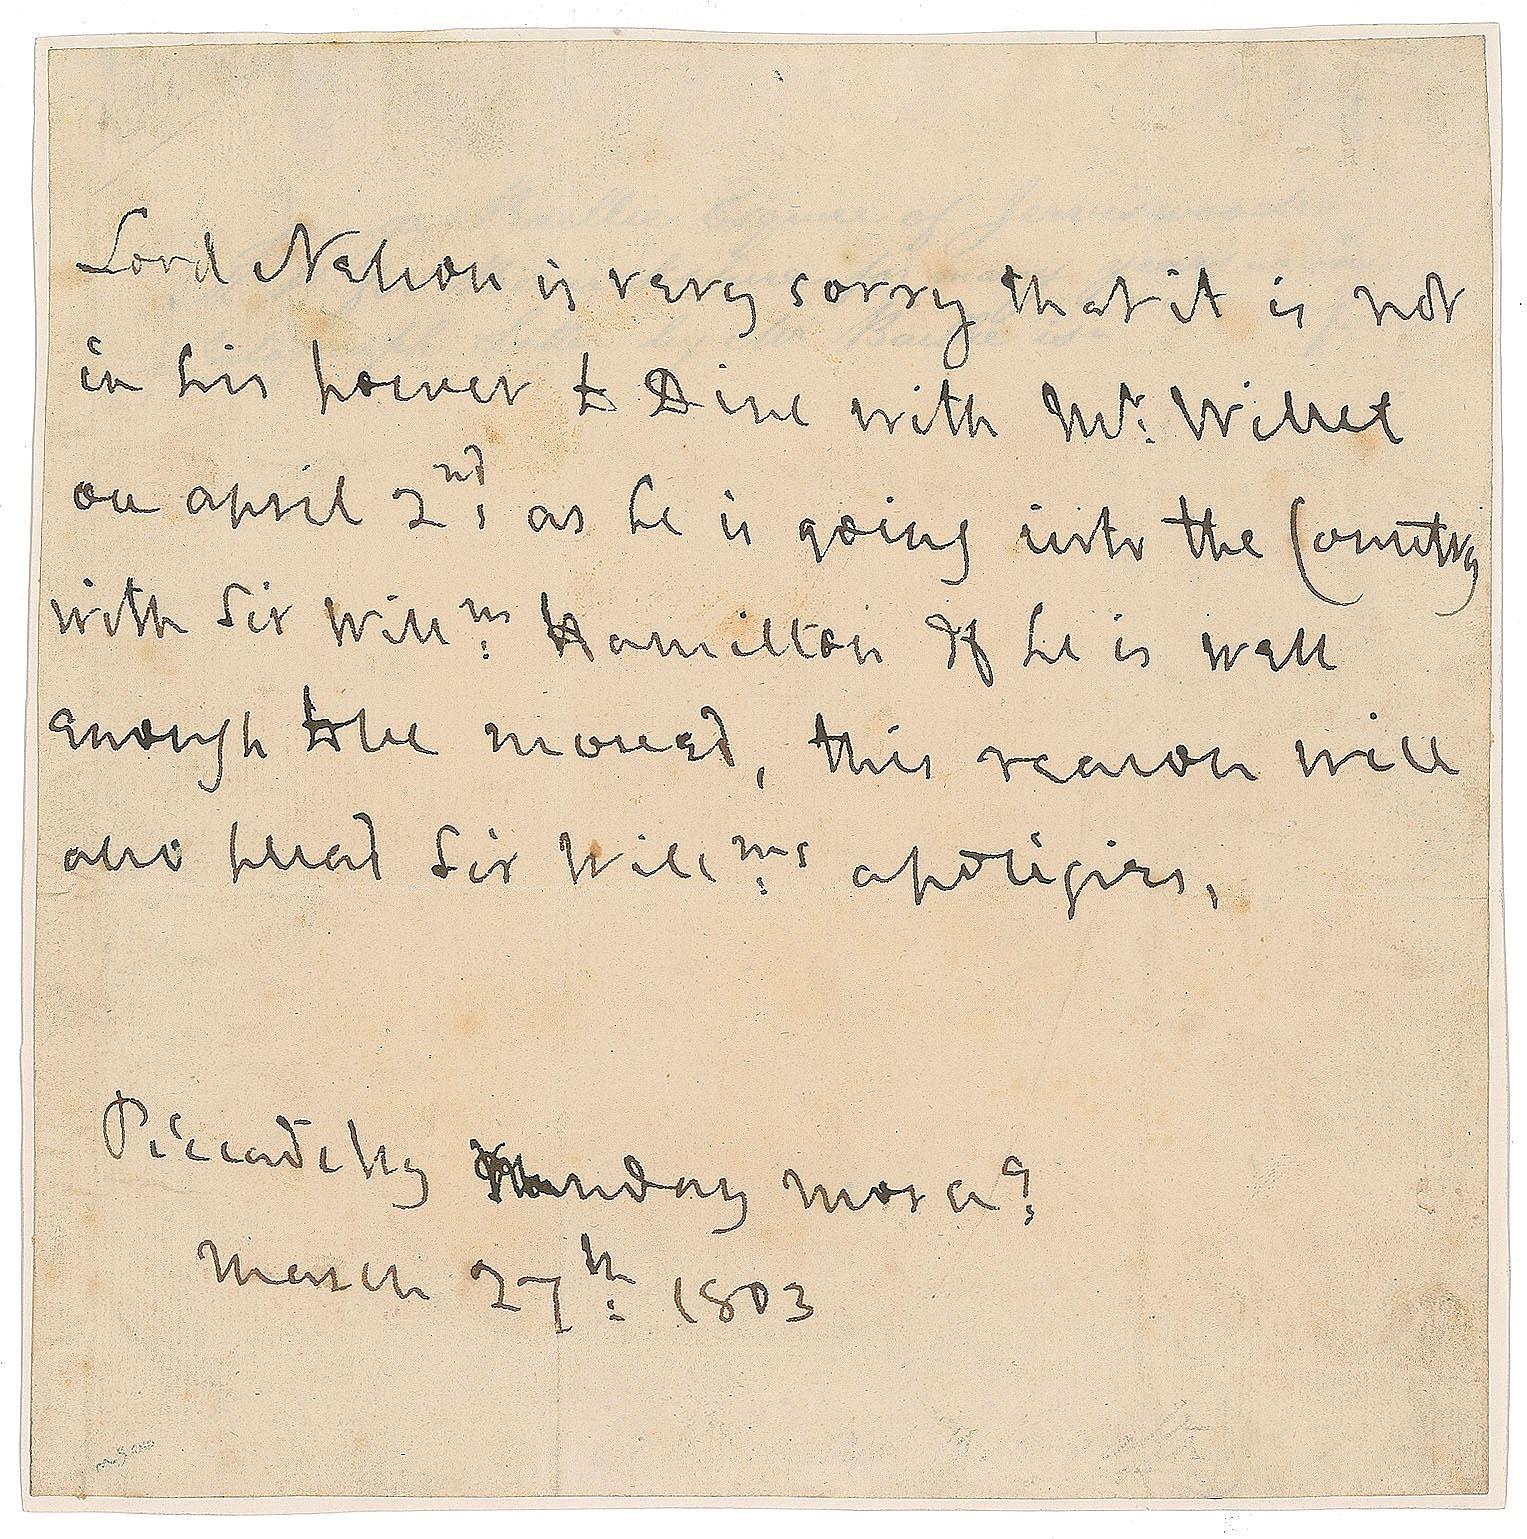 Lord Nelson is very sorry that it is not
in his power to Dine with Mr: Willet
on april 2nd: as he is going into the Country
with Sir Willm: Hamilton If he is well
enough to be moved, this reason will
also plead Sir Willms: apoligies,
Piccadilly Sunday morng:
March 27th: 1803